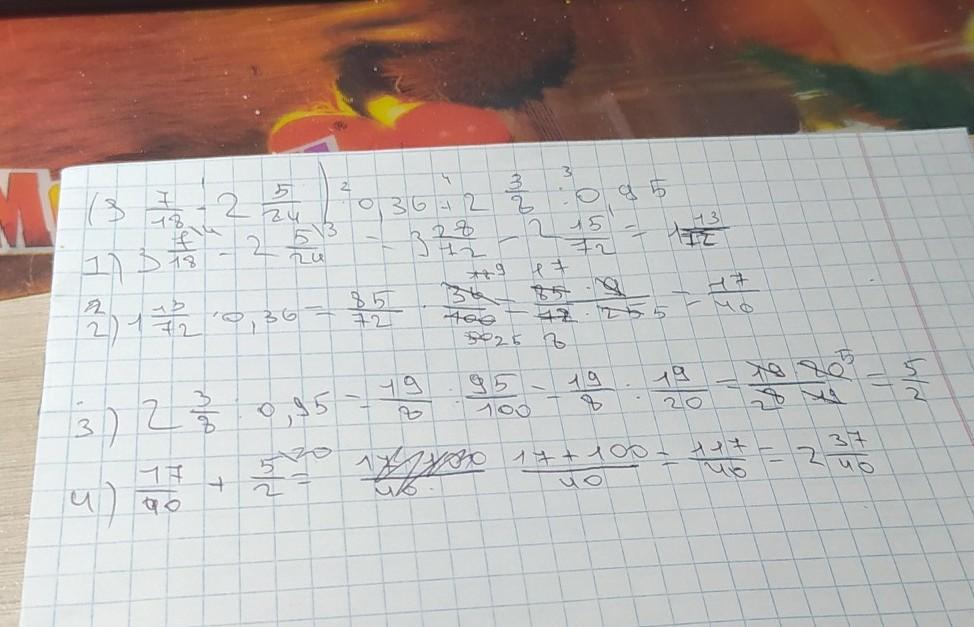 (3 7/18 - 2 5/24) · 0,36 + 2 3/8 : 0,95
1) 3 7/18 \4 - 2 5/24 \3 = 3 28/72 - 2 15/72 = 1 13/72
2) 1 13/72 · 0,36 = 85/72 · 36/100 = 85 · 9 / 72 · 25 = 17/40
3) 2 3/8 : 0,95 = 19/8 : 95/100 = 19/8 : 19/20 = 19 20 / 8 19 = 5/2
4) 17/40 + 5/2 \20 = 17 + 100 / 40 = 117/40 = 2 37/40